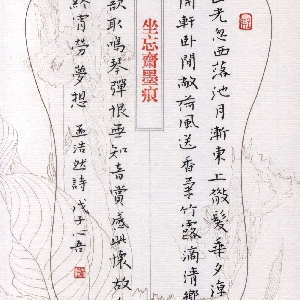 光忽西落池月漸東上散髮乘夕涼
開軒卧閒敞荷風送香氣竹露滴清響
坐忘齋墨痕
欲取鳴琴彈恨無知音賞感此懷故
終宵勞夢想 孟浩然詩 戊子心吾